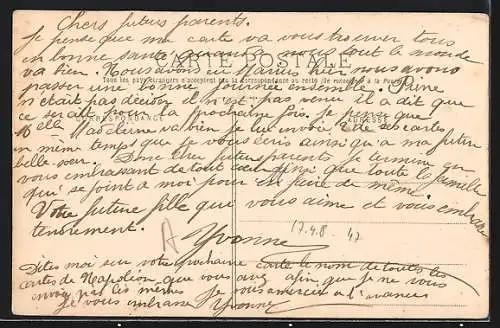 Chers futurs parents.
Je pense que ma carte va vous trouver tous
en bonne santé quand a nous tout le monde
CARTE POSTALE
va bien. Nous avons eu Marius hier nous avons
Tous les pays étrangers n'acceptent pas la Correspondance au recto (Se renseigner à la Poste)
passer une bonne journée ensemble. Prime
n'était pas décider il n'est pas venu il a dit que
ce serait pour la prochaine fois. Je pense que
CORRESPONDANCE
ADRESSE
Melle Marceline va bien je lui envoie une de ses cartes
en même temps que je vous écris ainsi qu'a ma future
belle-sœur. Donc cher futurs parents je termine en
vous embrassant de tout cœur ainsi que toute la famille
qui se joint a moi pour en faire de même.
Votre future fille qui vous aime et vous embrasse
tendrement.
17.4.8 - 47
A
Yvonne
Dites moi sur votre prochaine carte le nom de toutes les
cartes de Napoléon que vous avez afin que je ne vous
envoy pas les mêmes je vous remercie a l'avance
Je vous embrasse Yvonne